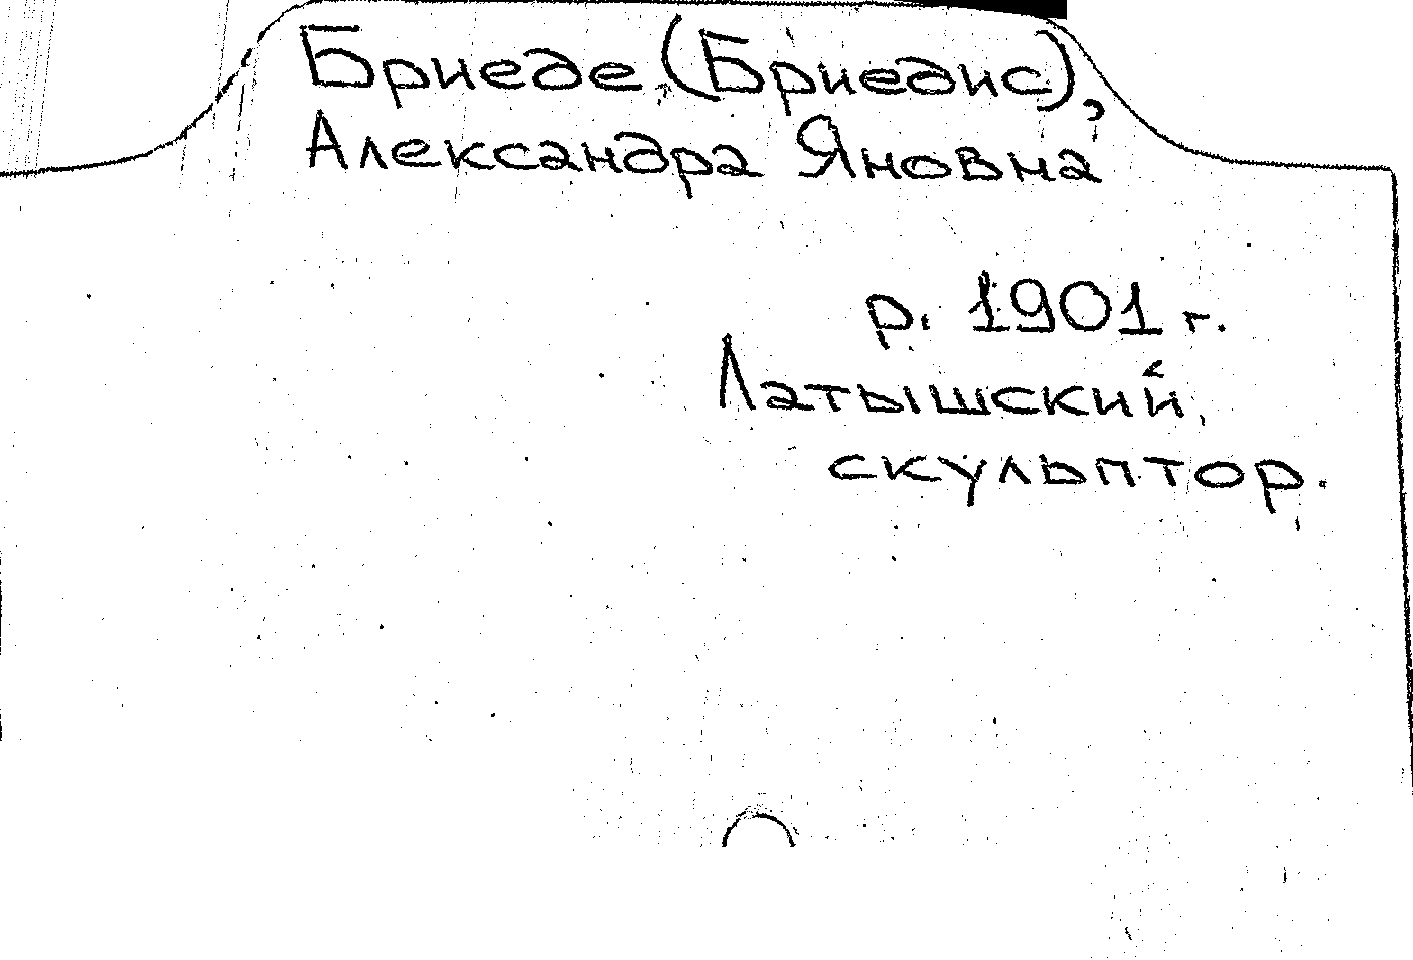 Бриеде (Бриедис),
Александра Яновна
р. 1901 г.
Латышский
скульптор.